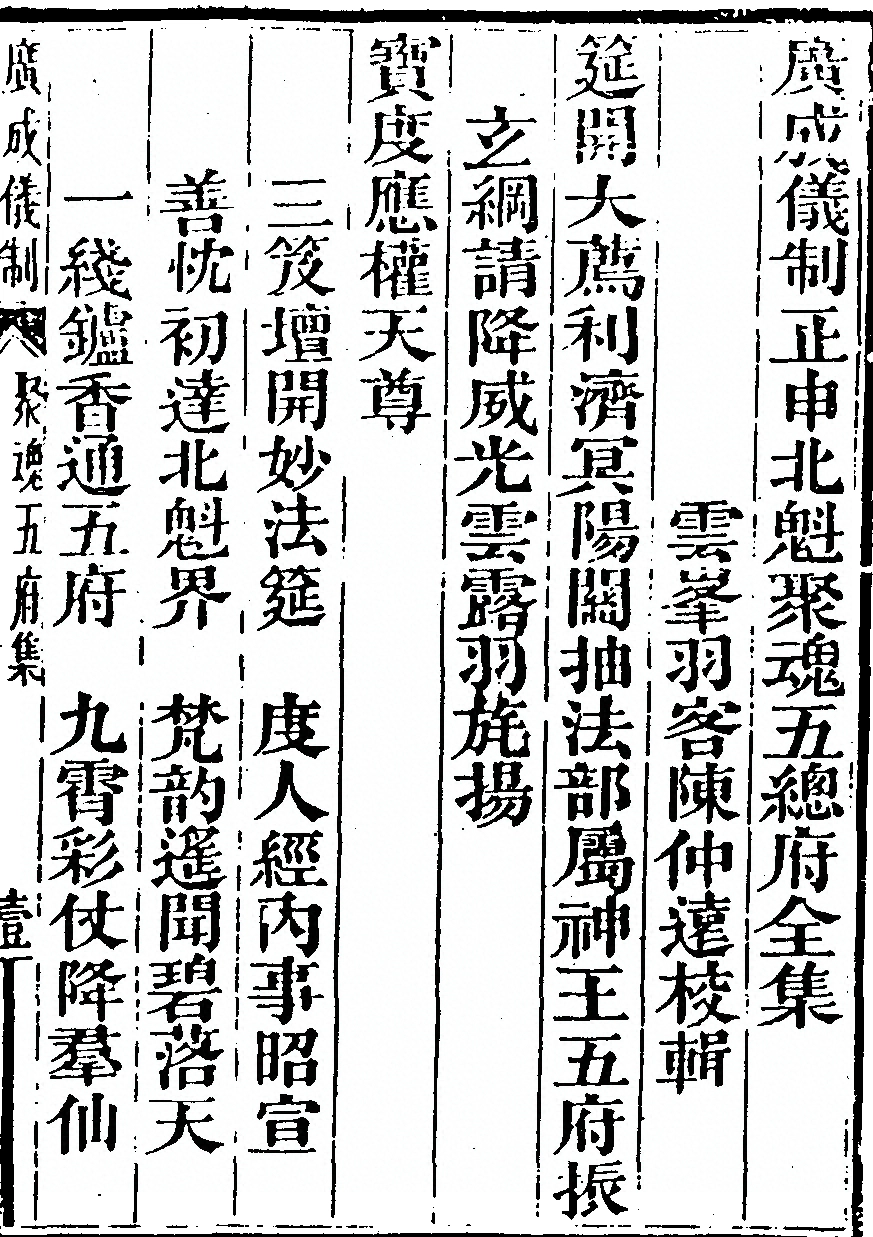 廣成儀制正申北魁聚魂五總府全集
雲峯羽客陳仲遠校輯
筵開大薦利濟冥陽闢抽法部屬神王五府振
玄綱請降威光雲露羽旄揚
寶度應權天尊
三笈壇開妙法筵　度人經內事昭宣
善忱初達北魁界　梵韵遥聞碧落天
一綫鑪香通五府　九霄彩仗降羣仙
廣成儀制　聚魂五府集　壹